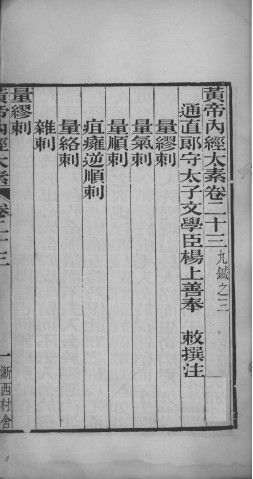 黃帝內經太素卷二十三九鍼之三
通直郎守太子文學臣楊上善奉 敕撰注
量繆刺
量氣刺
量順刺
疽癰逆順刺
量絡刺
雜刺
量繆刺
黃帝內經太素 卷二十三 一 漸西村舍